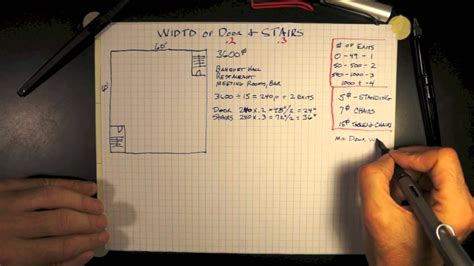 WIDTH OF DOOR & STAIRS
.2 .3
60'
3600
BANQUET HALL
RESTAURANT
MEETING ROOMS, BAR
3600 ÷ 15 = 240.0 = 2 EXITS
DOOR 240 x .2 = 48"/2 = 24"
STAIRS 240 x .3 = 72"/2 = 36"
# OF EXITS
0 - 49 - 1
50 - 500 - 2
500 - 1000 - 3
1000 + - 4
5 - STANDING
7 CHAIRS
15 CHAIRS
MIN DOOR W